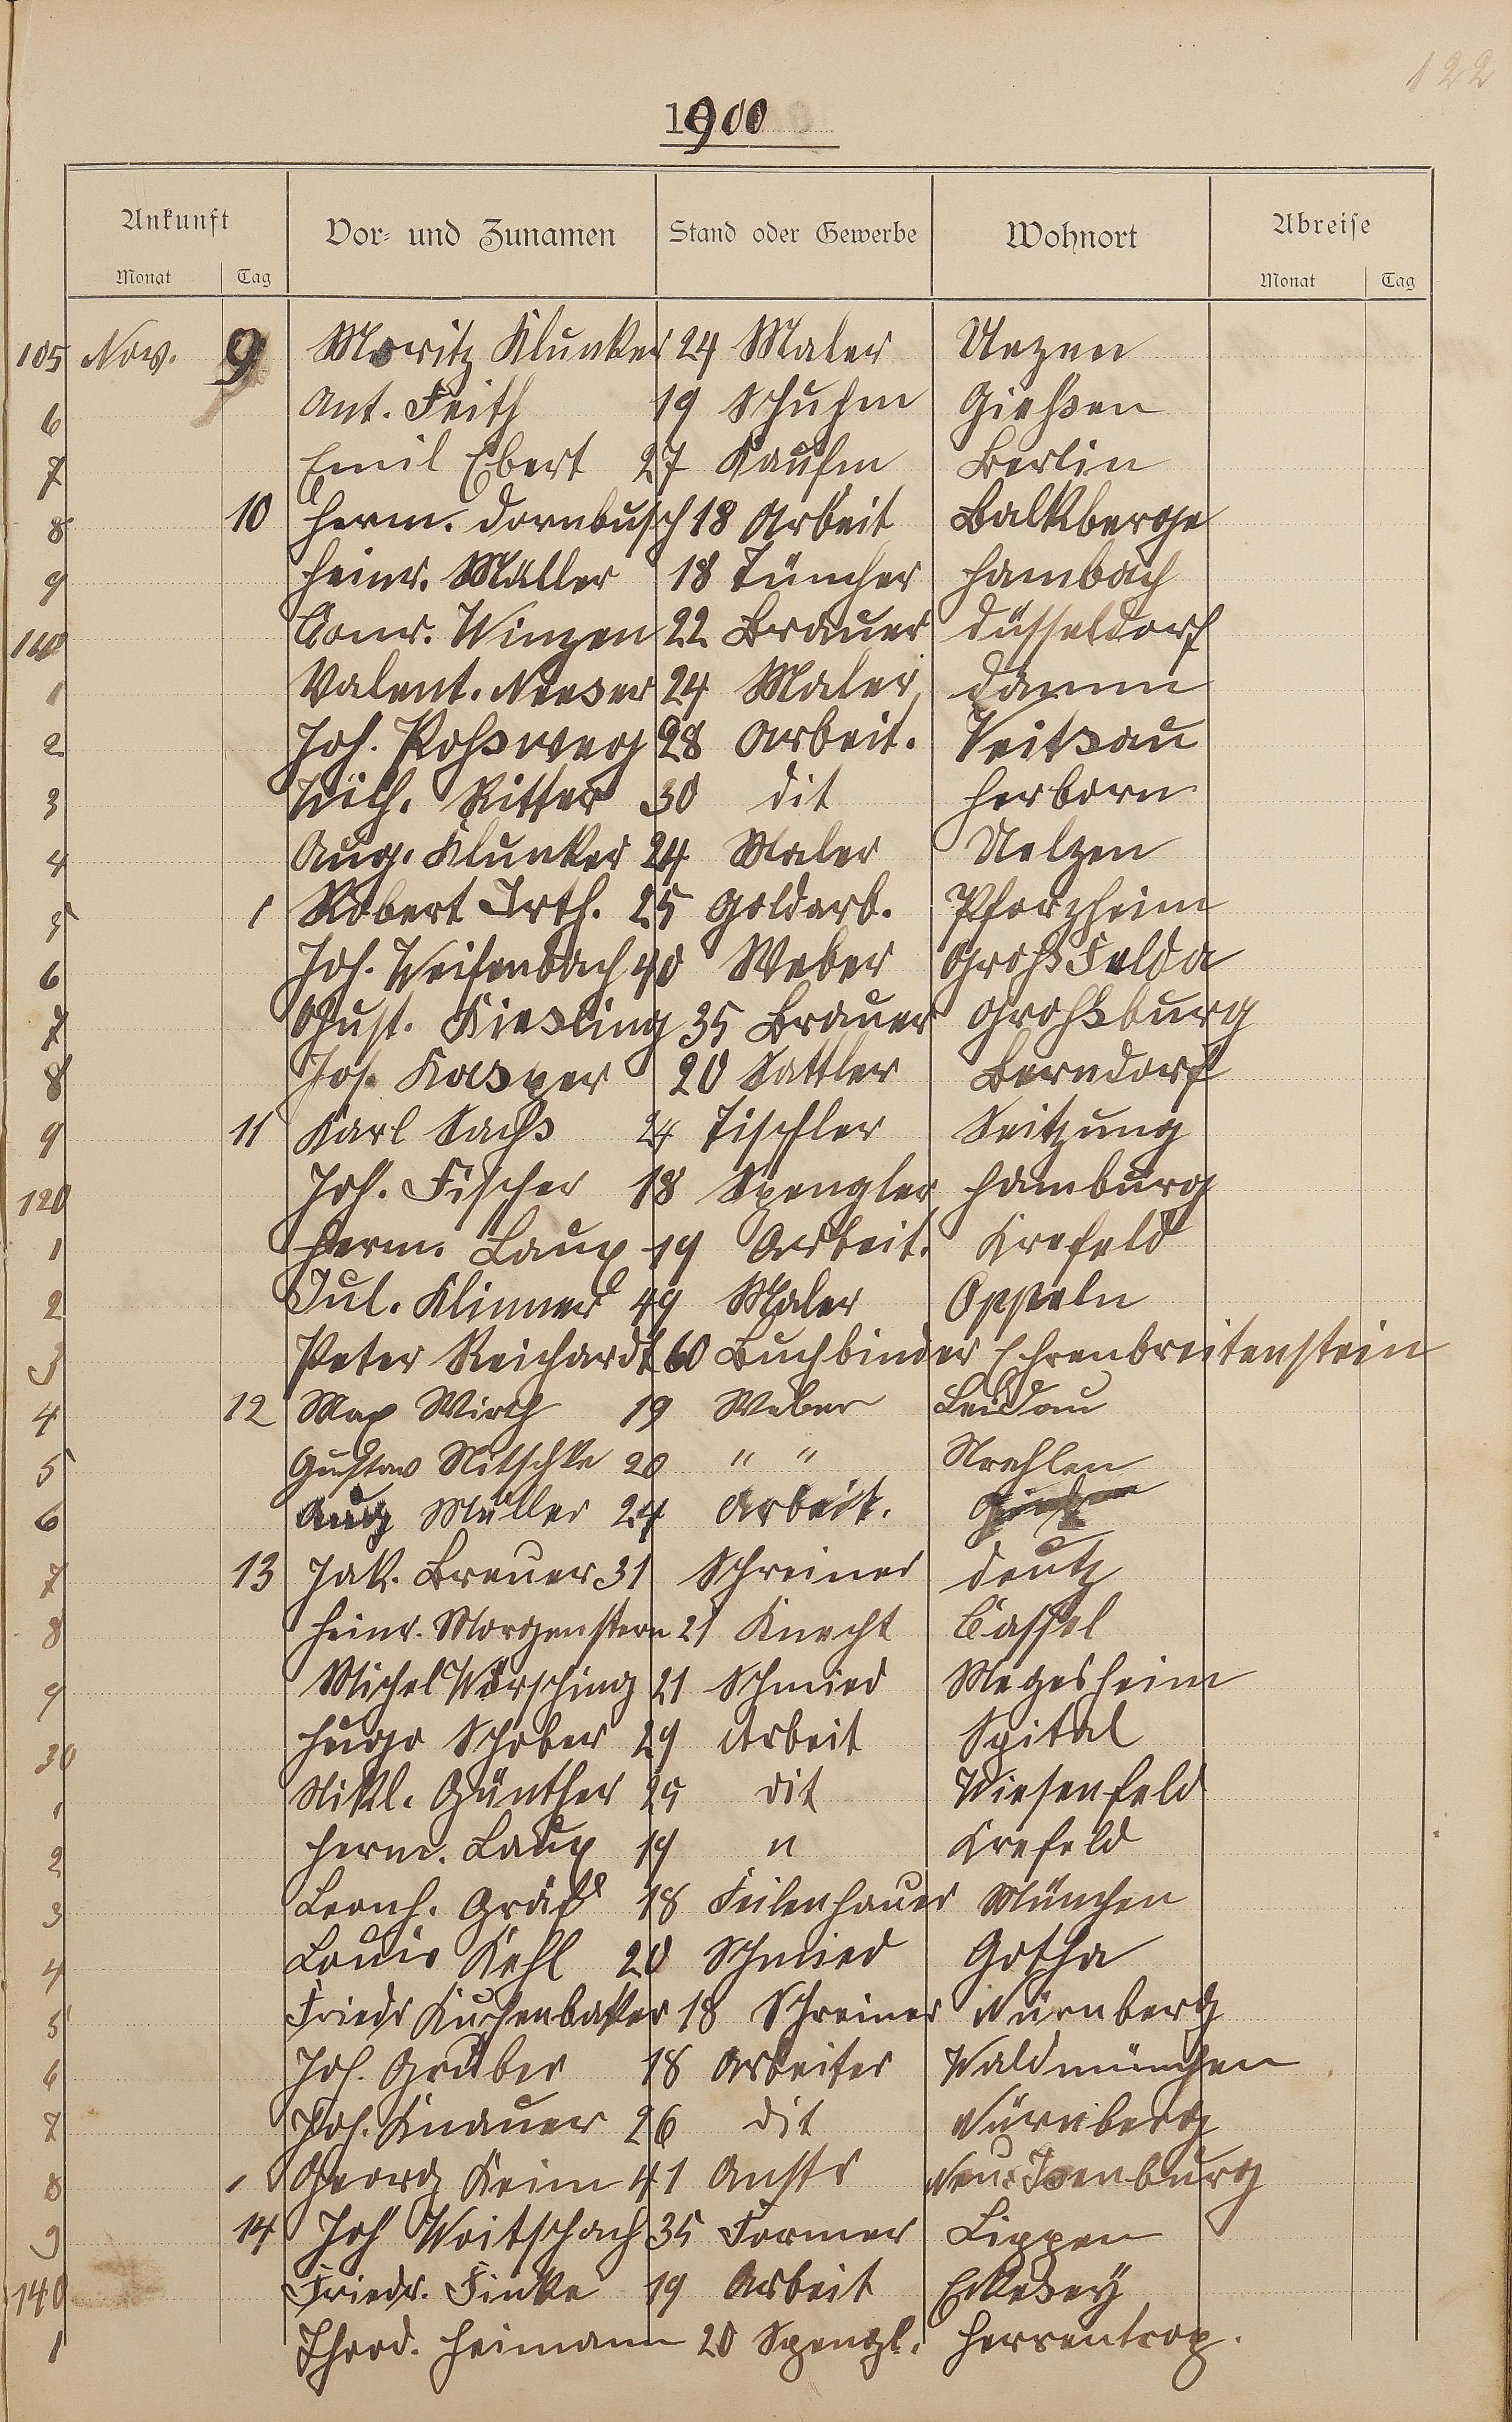 122
1900
Ankunft Vor- und Zunamen Stand oder Gewerbe Wohnort Abreise
Monat Tag Monat Tag
105 Nov. 9 Moritz Klunker 24 Maler Uezen
6 Ant. Feith 19 Schuhm Gießen
7 Emil Ebert 27 Kaufm Berlin
8 10 Herm. Dornbusch 18 Arbeit Balkberge
9 Heinr. Müller 18 Tüncher Hambach
110 Conr. Winzen 22 Brauer Düsseldorf
1 Valent. Neeser 24 Maler Damm
2 Joh. Roßweg 28 Arbeit. Veitsau
3 Wilh. Ritter 30 dit Herborn
4 Aug. Klunker 24 Maler Uelzen
5 1 Robert Irth. 25 Goldarb. Pforzheim
6 Joh. Weisenbach 40 Weber Groß Felda
7 Gust. Kiesling 35 Brauer Großburg
8 Jos. Kasper 20 Sattler Berndorf
9 11 Karl Sachs 24 Tischler Seitzung
120 Joh. Fischer 18 Spengler Hamburg
1 Herm. Laux 19 Arbeit. Krefeld
2 Jul. Klinner 49 Maler Oppeln
3 Peter Reichardt 60 Buchbinder Ehrenbreitenstein
4 12 Max Wirth 19 Weber Leidau
5 Gustav Nitschke 20 " " Strehlen
6 Aug Müller 24 Arbeit.
7 13 Jak. Breuer 31 Schreiner Deutz
8 Heinr. Morgenstern 21 Knecht Cassel
9 Michel Wörsching 21 Schmied Megesheim
30 Hugo Schober 29 Arbeit Spital
1 Nikl. Günther 25 dit Wiesenfeld
2 Herm. Laux 19 " Krefeld
3 Leonh. Gräf 18 Feilenhauer München
4 Louis Kehl 20 Schmied Gotha
5 Friedr Kuchenbaker 18 Schreiner Nürnberg
6 Joh. Gruber 18 Arbeiter Waldmünchen
7 Joh. Knauer 26 dit Nürnberg
8 1 Georg Keim 41 Anstr Neu-Isenburg
9 14 Joh Woitschach 35 Former Lippen
140 Friedr. Finke 19 Arbeit Eckesey
1 Theod. Heimann 20 Spengl. Herrentrop.